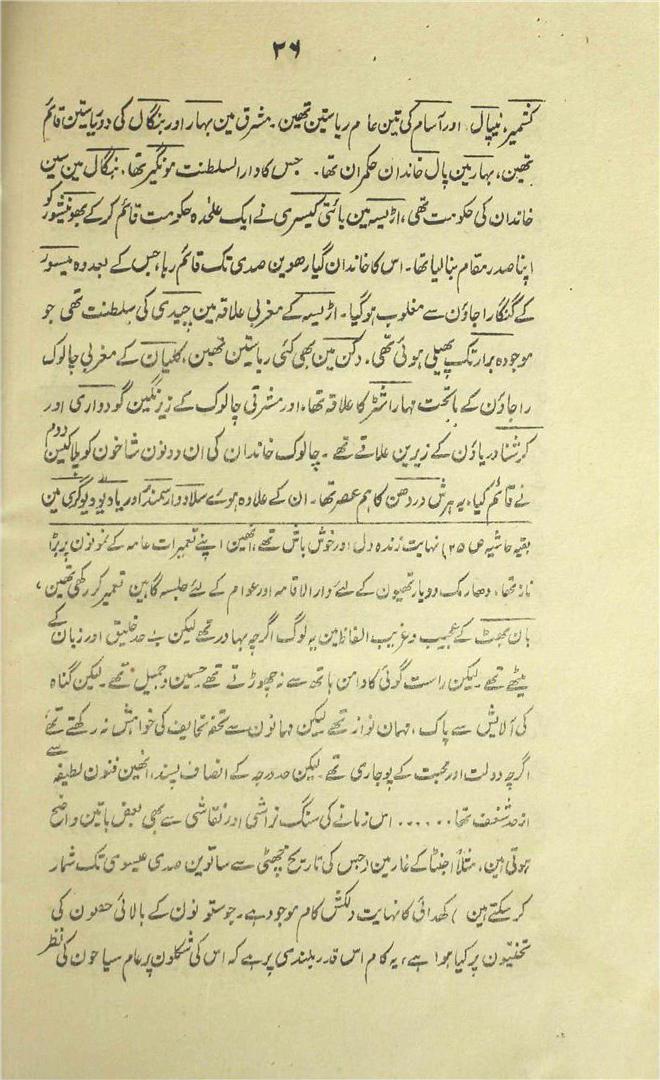 ۲۶
کشمیر، نیپال اور آسام کی تین عام ریاستین تھین۔ مشرق مین بہار اور بنگال کی دو ریاستین قائم
تھین، بہار مین پال خاندان حکمران تھا۔ جس کا دار السلطنت مونگیر تھا، بنگال مین سین
خاندان کی حکومت تھی، اڑیسہ مین یائتی کیسری نے ایک علٰحدہ حکومت قائم کر کے بھونیشور کو
اپنا صدر مقام بنا لیا تھا۔ اس کا خاندان گیارھوین صدی تک قائم رہا، جس کے بعد وہ میسور
کے گنگا راجاؤن سے مغلوب ہوگیا۔ اڑیسہ کے مغربی علاقہ مین چیدی کی سلطنت تھی جو
موجودہ برار تک پھیلی ہوئی تھی۔ دکن مین بھی کئی ریاستین تھین، کلیان کے مغربی چالوک
راجاؤن کے ماتحت مہاراشٹر کا علاقہ تھا، اور مشرقی چالوک کے زیر نگین گوداواری اور
کرشنا دریاؤن کے زیرین علاقے تھے۔ چالوک خاندان کی ان دونون شاخون کو پلاکیسن دوم
نے قائم کیا، یہ ہرش دردھن کا ہم عصر تھا۔ ان کے علاوہ ہوے سلا دوارسمندر اور یادیو دیوگری مین
بقیہ حاشیہ ص ۲۵) نہایت زندہ دل اور خوش باش تھے، انھین اپنے تعمیرات عامہ کے نمونون پر بڑا
ناز تھا، دھارمک دویارتھیون کے لئے دار الاقامہ اور عوام کے لئے جلسہ گاہین تعمیر کر رکھی تھین،
بان بھٹ کے عجیب و غریب الفاظ مین یہ لوگ اگرچہ بہادر تھے لیکن بے حد خلیق اور زبان کے
میٹھے تھے۔ لیکن راست گوئی کا دامن ہاتھ سے نہ چھوڑتے تھے۔ حسین و جمیل تھے۔ لیکن گناہ
کی آلایش سے پاک، مہمان نواز تھے لیکن مہمانون سے تحفہ تحایف کی خواہش نہ رکھتے تھے
اگرچہ دولت اور محبت کے پوجاری تھے لیکن حد درجہ کے انصاف پسند، انھین فنون لطیفہ سے
از حد شغف تھا...... اس زمانے کی سنگ تراشی اور نقاشی سے بھی بعض باتین واضح
ہوتی ہین، مثلاً اجنٹا کے غار مین (جس کی تاریخ چھٹی سے ساتوین صدی عیسوی تک شمار
کر سکتے ہین) کھدائی کا نہایت دلکش کام موجود ہے۔ جو ستونون کے بالائی حصون کی
تختیون پر کیا ہوا ہے، یہ کام اس قدر بلندی پر ہے کہ اس کی شکلون پر عام سیاحون کی نظر